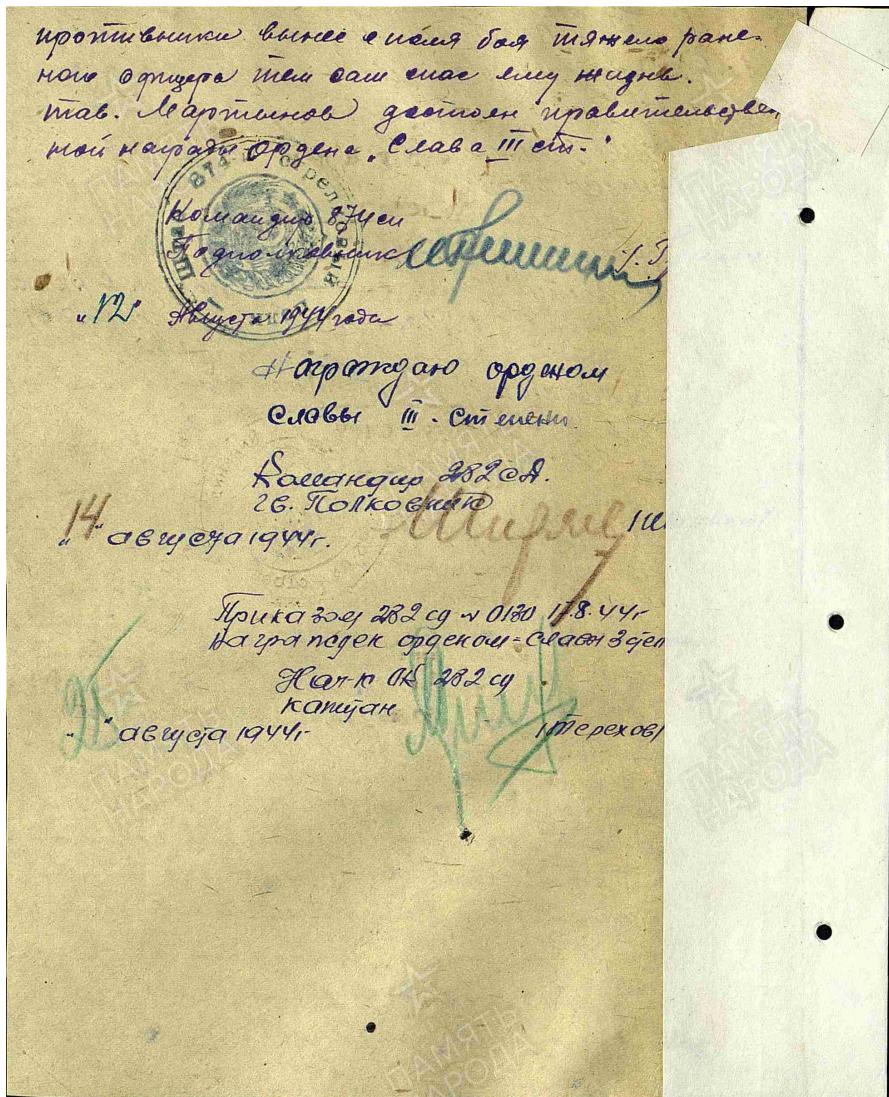 противника вынес с поля боя тяжело ране-
ного офицера тем сам спас ему жизнь.
тов. Мартынов достоин правительствен
ной награды ордена „Слава III ст."
Командир 874 сп
Подполковник
„12" Августа 1944 года
Награждаю орденом
Славы III - степени
Командир 282 сд.
гв. Полковник
„14" августа 1944 г.
Приказом 282 сд № 0130 17.8.44 г
награжден орденом = славы 3 степ
Нач-к ОК 282 сд
капитан
" августа 1944 г /Терехов/
ПАМЯТЬ
НАРОДА